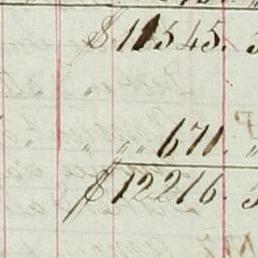 $ 11545. 5
" " 671. "
$ 12216. 5